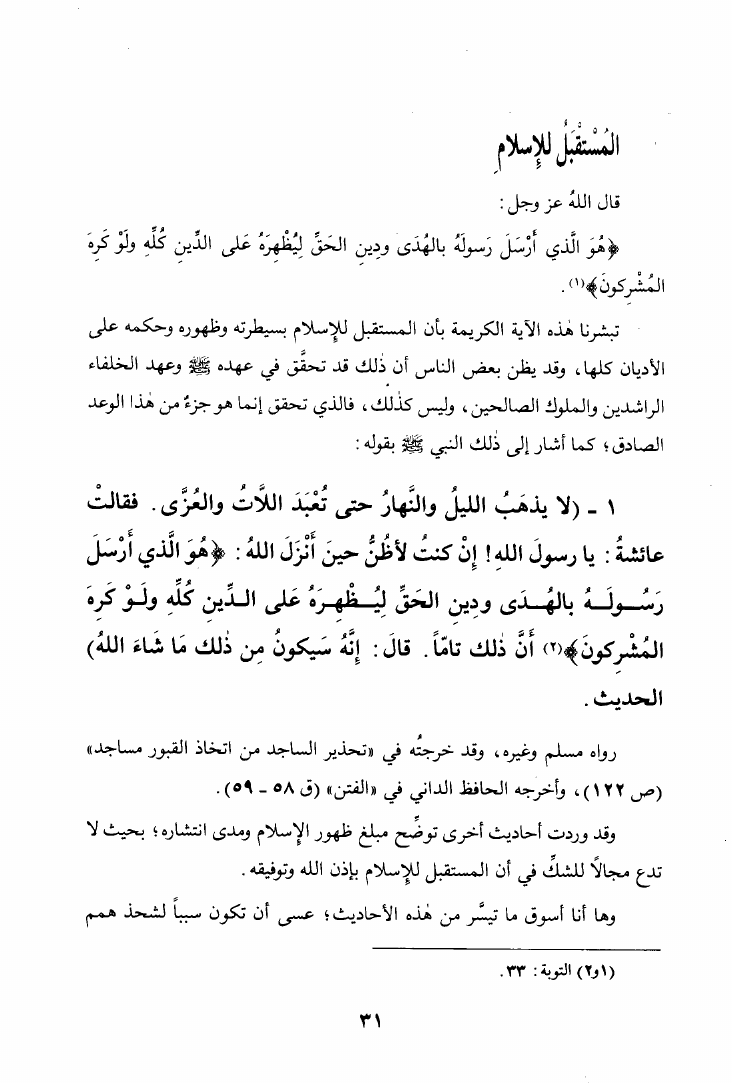 المُسْتَقْبَلُ للإِسلامِ
قال اللهُ عز وجل :
﴿هُوَ الَّذي أَرْسَلَ رَسولَهُ بالهُدَى ودِينِ الحَقِّ لِيُظْهِرَهُ عَلى الدِّينِ كُلِّهِ ولَوْ كَرِهَ
المُشْرِكونَ﴾(١) .
تبشرنا هٰذه الآية الكريمة بأن المستقبل للإِسلام بسيطرته وظهوره وحكمه على
الأديان كلها، وقد يظن بعض الناس أن ذٰلك قد تحقَّق في عهده ﷺ وعهد الخلفاء
الراشدين والملوك الصالحين، وليس كذٰلك، فالذي تحقق إنما هو جزءٌ من هٰذا الوعد
الصادق؛ كما أشار إلى ذٰلك النبي ﷺ بقوله :
١ - (لا يذهَبُ الليلُ والنَّهارُ حتى تُعْبَدَ اللَّاتُ والعُزَّى . فقالتْ
عائشةُ : يا رسولَ اللهِ ! إِنْ كنتُ لأظُنُّ حينَ أَنْزَلَ اللهُ : ﴿هُوَ الَّذي أَرْسَلَ
رَسُولَهُ بالهُدَى ودِينِ الحَقِّ لِيُظْهِرَهُ عَلى الدِّينِ كُلِّهِ ولَوْ كَرِهَ
المُشْرِكونَ﴾(٢) أَنَّ ذٰلك تامّاً . قالَ : إِنَّهُ سَيكونُ مِن ذٰلك مَا شَاءَ اللهُ)
الحديث .
رواه مسلم وغيره، وقد خرجتُه في «تحذير الساجد من اتخاذ القبور مساجد»
(ص ١٢٢)، وأخرجه الحافظ الداني في «الفتن» (ق ٥٨ - ٥٩) .
وقد وردت أحاديث أخرى توضِّح مبلغ ظهور الإِسلام ومدى انتشاره؛ بحيث لا
تدع مجالاً للشكِّ في أن المستقبل للإِسلام بإذن الله وتوفيقه .
وها أنا أسوق ما تيسَّر من هٰذه الأحاديث؛ عسى أن تكون سبباً لشحذ همم
(١و٢) التوبة : ٣٣ .
٣١